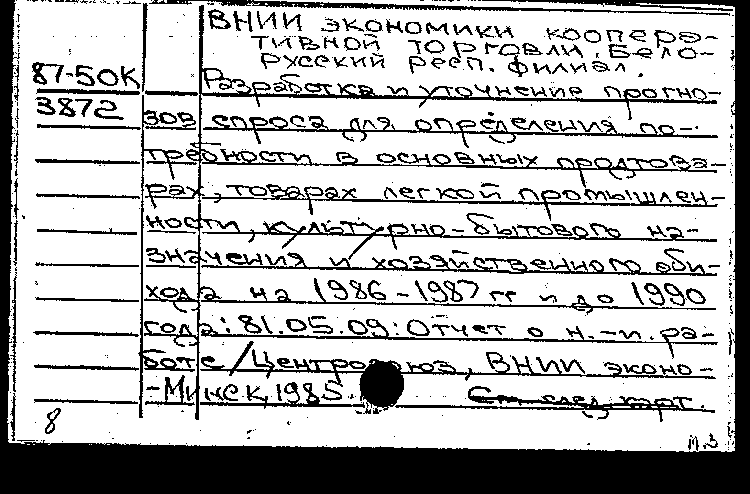 ВНИИ экономики коопера-
тивной торговли. Бело-
русский респ. филиал.
87-50К Разработка и уточнение прогно-
3872 зов спроса для определения по-
требности в основных продтова-
рах, товарах легкой промышлен-
ности, культурно-бытового на-
значения и хозяйственного оби-
хода на 1986-1987 гг и до 1990
года: 81.05.09: Отчет о н.-и. ра-
боте / Центросоюз, ВНИИ эконо-
-Минск, 1985. См. след. карт.
8